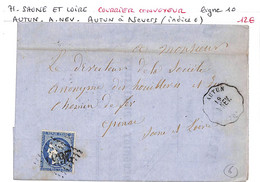 71. SAONE ET LOIRE COURRIER CONVOYEUR Ligne 10
AUTUN. A. NEV. AUTUN à NEVERS (indice 6) 12€
a Monsieur
Le Directeur de la Société
Anonyme des houillères et
Chemin de fer
Epinac
Saone et Loire
AUTUN